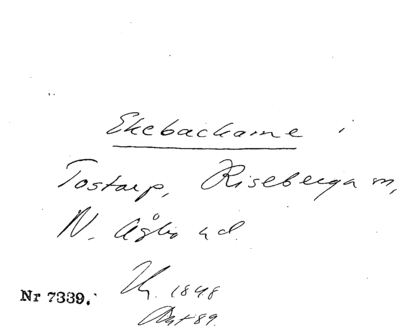 Ekebackarne i
Tostarp, Riseberga sn,
N. Åsbo hd.
Nr 7339.
1848
89.